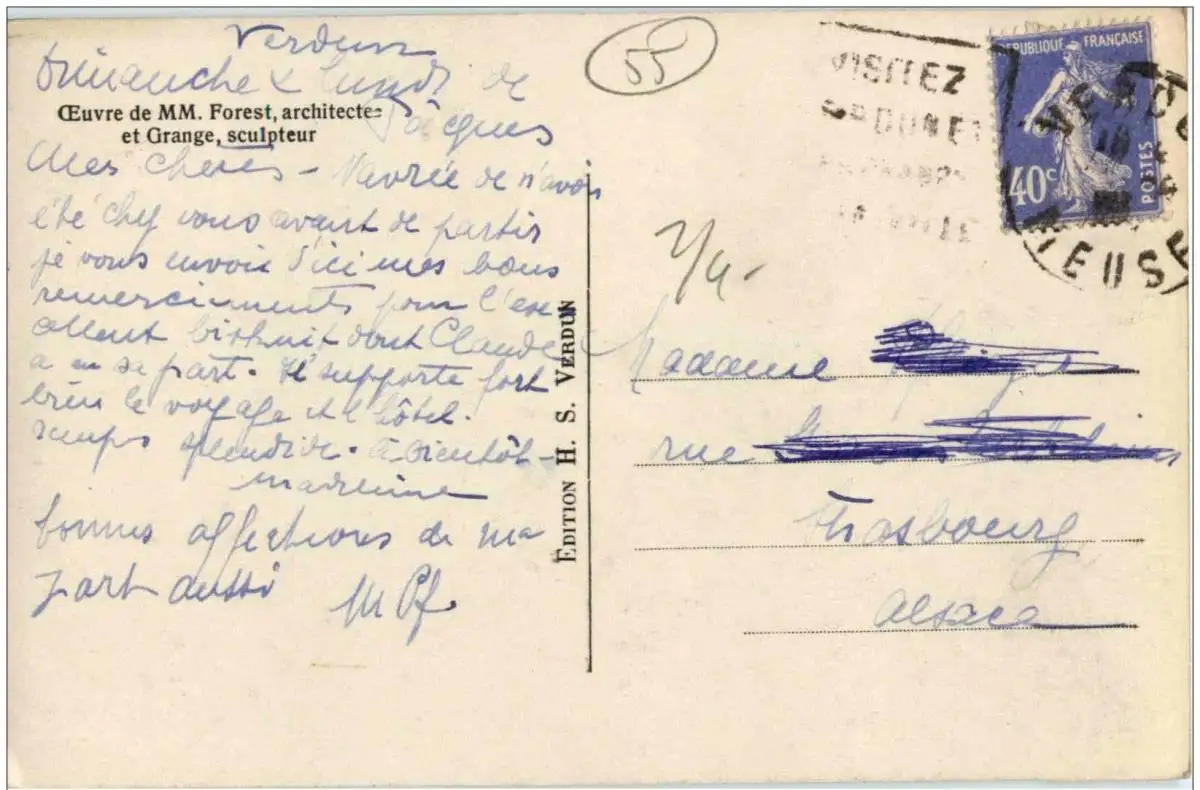 Verdun
Dimanche & lundi de
Pâques
Œuvre de MM. Forest, architecte
et Grange, sculpteur
Mes chères – Navrée de n'avoir
été chez vous avant de partir
je vous envoie d'ici mes bons
remerciments pour l'exc
ellent biskuit dont Claude
a eu sa part. Il supporte fort
bien le voyage et l'hôtel.
Temps splendide. à bientôt –
Madeleine
bonnes affections de ma
part aussi
EDITION H. S. VERDUN
55
VISITEZ
RÉPUBLIQUE FRANÇAISE
40c
POSTES
VERDU
18
MEUSE
Madame
rue
Strasbourg
Alsace